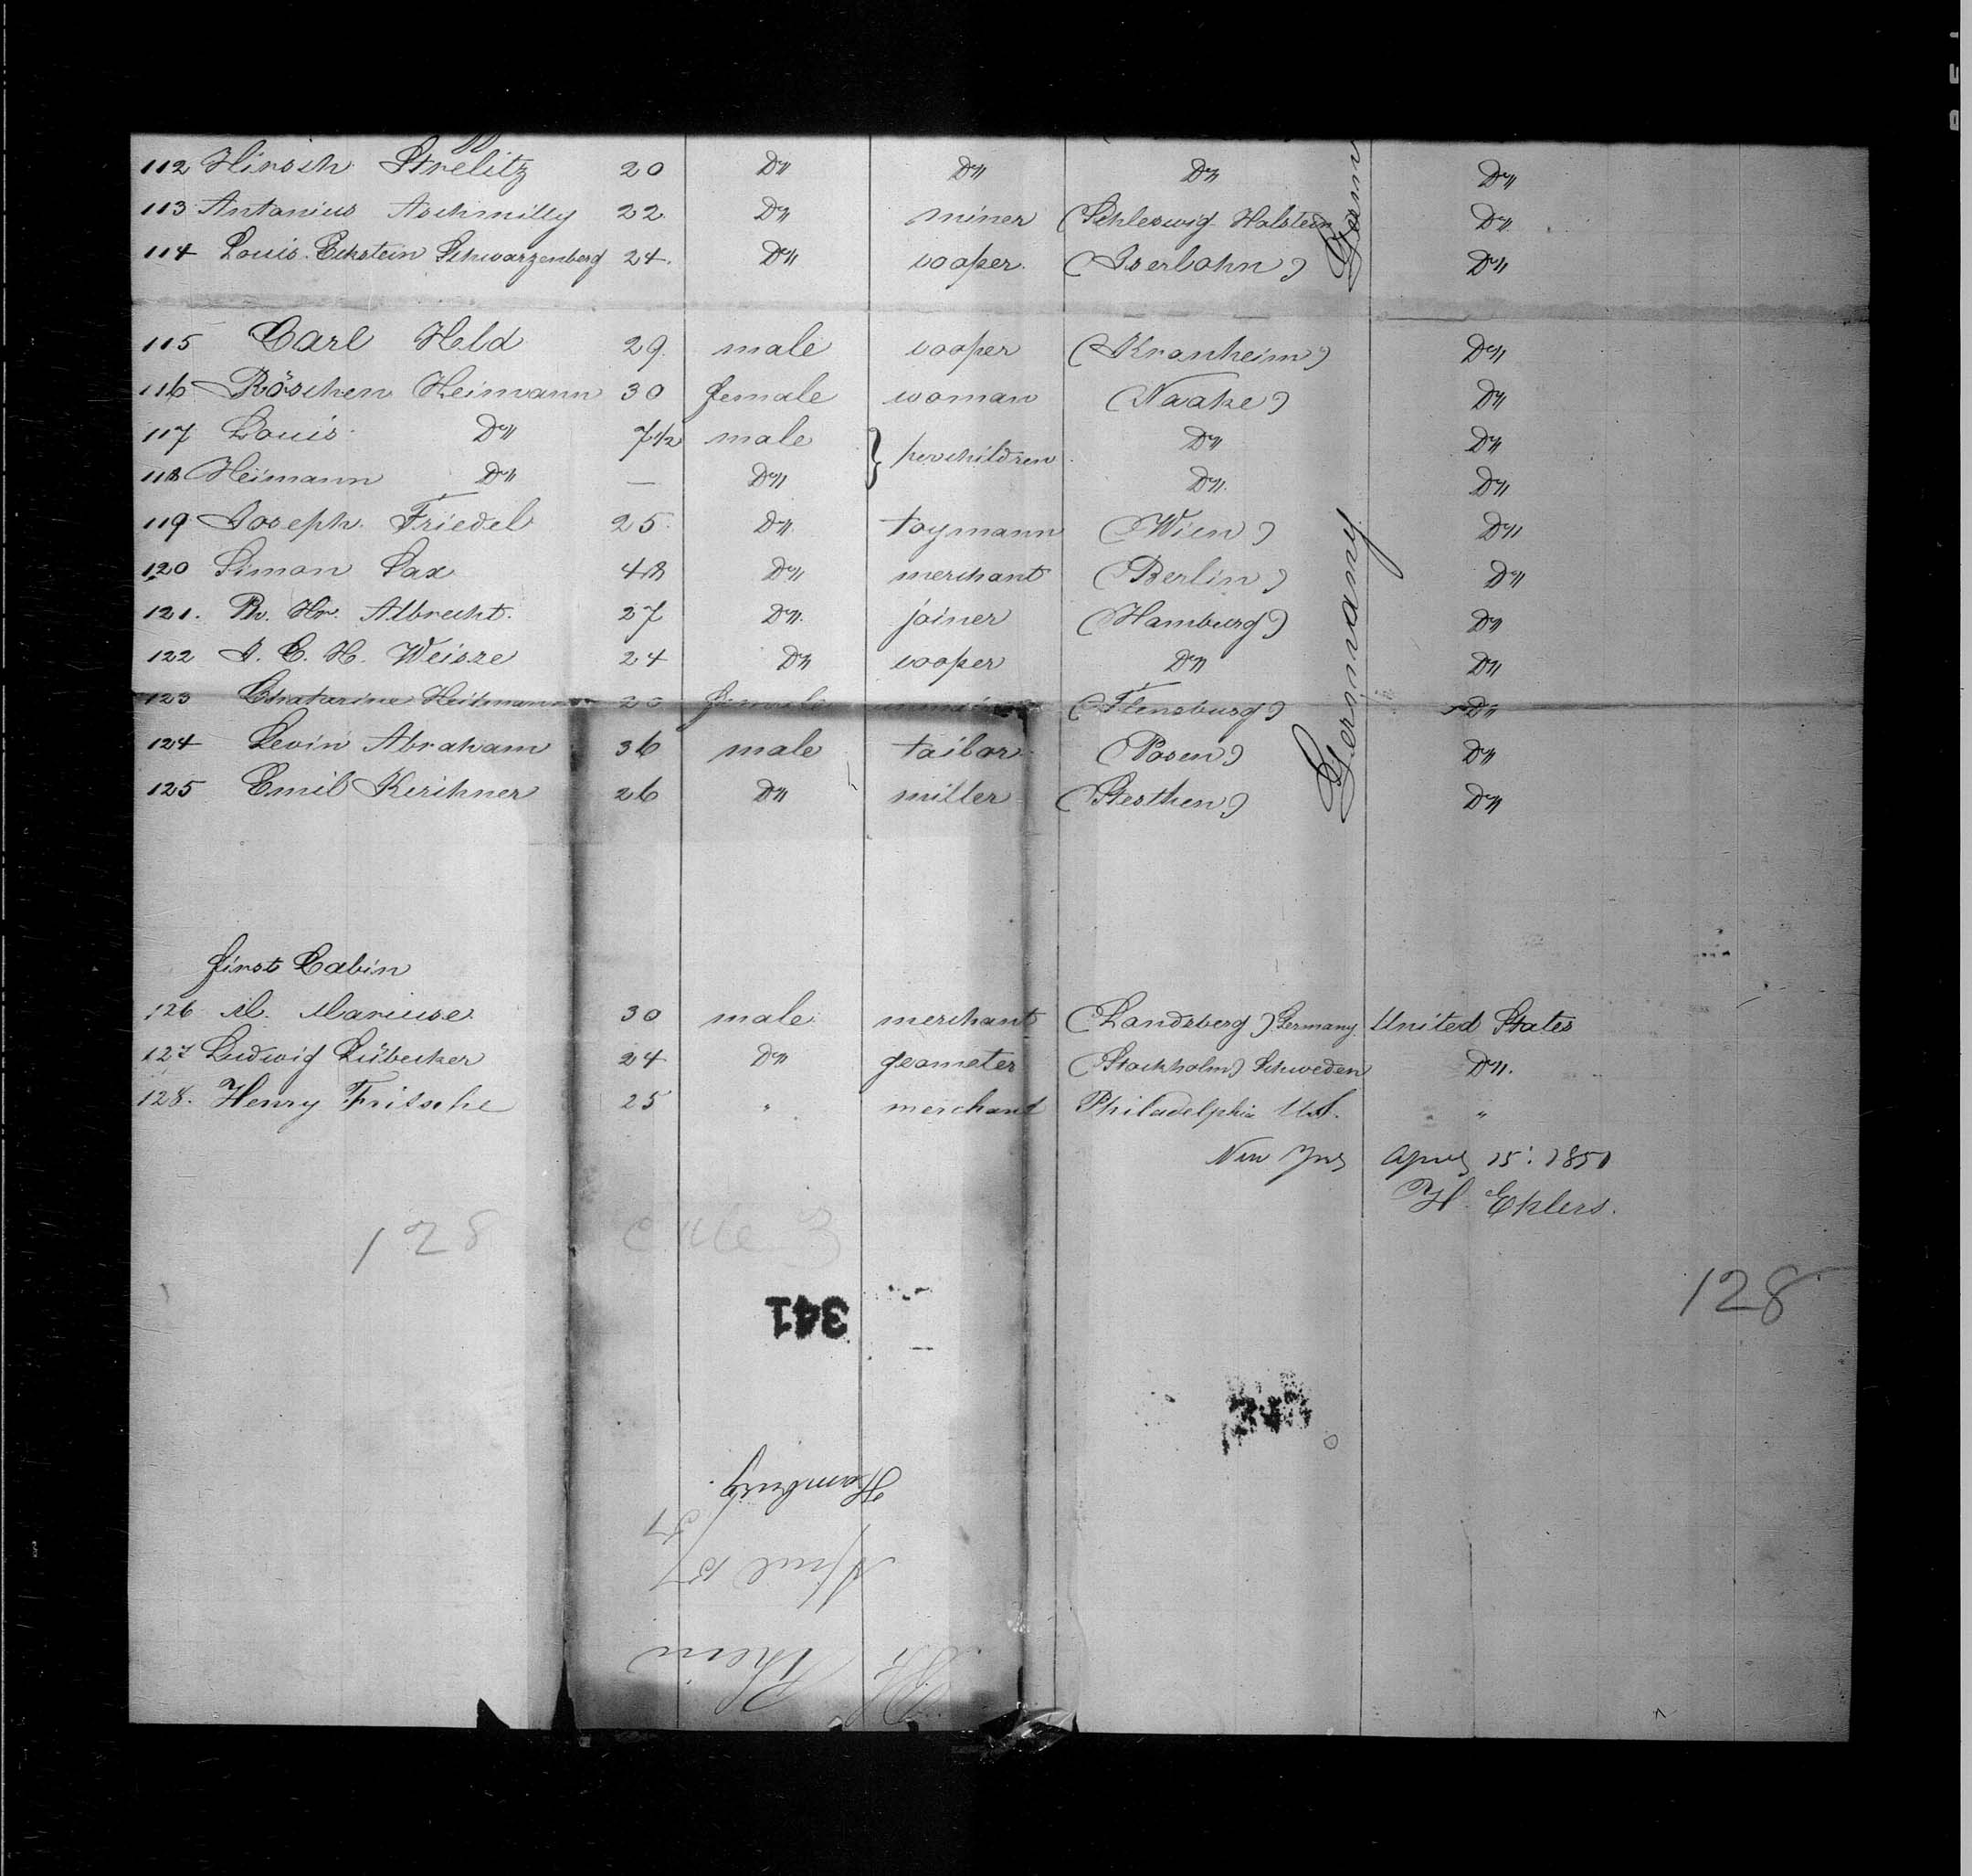 112 Hirsch Strelitz 20 Do Do Do Do
113 Antonius Aschmilly 22 Do miner (Schleswig Holstein Do
114 Louis Eckstein Schwarzenberg 24. Do cooper. (Iserlohn) Do
115 Carl Held 29. male cooper (Kranheim) Do
116 Röschen Heimann 30 female woman (Naake) Do
117 Louis Do 7 1/2 male } her children Do Do
118 Heimann Do — Do Do Do
119 Joseph Friedel 25. Do toymann (Wien) Do
120 Simon Sax 48 Do merchant (Berlin) Do
121. Hr. Albrecht. 27 Do joiner (Hamburg) Do
122 J. C. H. Weisze 24 Do cooper Do Do
123 Chatarine female (Flensburg) Do
124 Levin Abraham 36 male tailor (Posen) Do
125 Emil Kirchner 26 Do miller (Stesthen) Do
Germany
first Cabin
126 M. Mariuse 30 male merchant (Landsberg) Germany. United States
127 Ludwig Lübecker 24 Do geometer (Stockholm) Schweden Do.
128. Henry Fritsche 25 " merchant Philadelphia U.S. "
New York April 15. 1851
H. Ehlers.
128
128
341
Hamburg.
April 15/51
Rhein